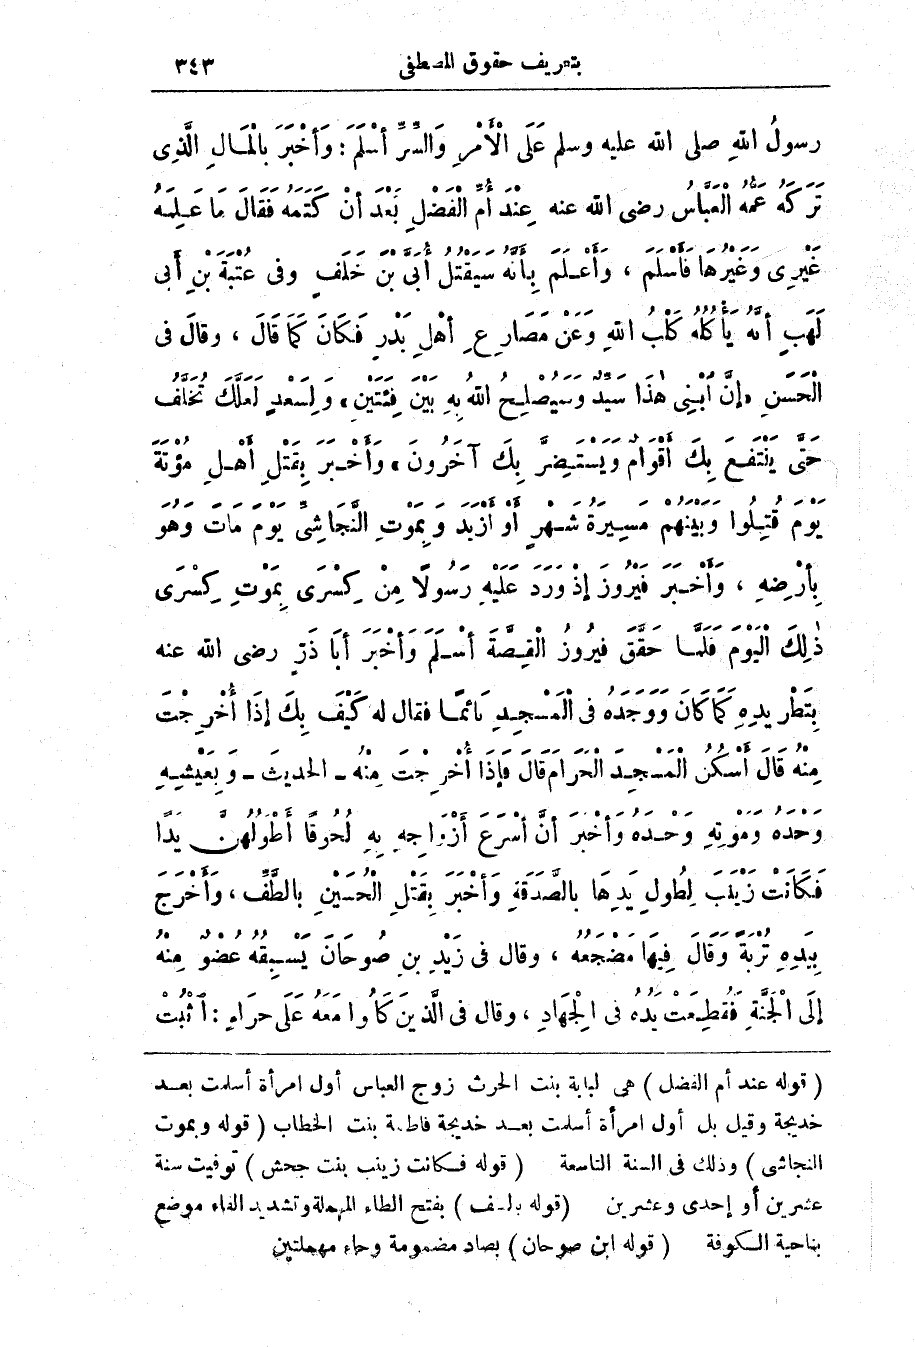 بتعريف حقوق المصطفى ٣٤٣
رسولُ اللهِ صلى الله عليه وسلم عَلَى الْأَمْرِ وَالسِّرِّ أَسْلَمَ : وَأَخْبَرَ بِالْمَـالِ الَّذِى
تَرَكَهُ عَمُّهُ الْعَبَّاسُ رضى الله عنه عِنْدَ أُمِّ الْفَضْلِ بَعْدَ أَنْ كَتَمَهُ فَقَالَ مَا عَلِمَهُ
غَيْرِى وَغَيْرُهَا فَأَسْلَمَ ، وَأَعْـلَمَ بِأَنَّهُ سَيَقْتُلُ أُبَىَّ بْنَ خَلَفٍ وفى عُتْبَةَ بْنِ أَبِى
لَهَبٍ أَنَّهُ يَأْكُلُهُ كَلْبُ اللهِ وَعَنْ مَصَارِعِ أَهْلِ بَدْرٍ فَكَانَ كَمَا قَالَ ، وقالَ فى
الْحَسَنِ «إنَّ ابْنِى هٰذَا سَيِّدٌ وَسَيُصْلِـحُ اللهُ بِهِ بَيْنَ فِئَتَيْنِ» وَلِسَعْدٍ لَعَلَّكَ تُخَلَّفُ
حَتَّى يَنْتَفِـعَ بِكَ أَقْوَامٌ وَيَسْتَـضِرَّ بِكَ آخَرُونَ» وَأَخْـبَرَ بِقَتْلِ أَهْـلِ مُؤْتَةَ
يَوْمَ قُتِـلُوا وَبَيْنَهُمْ مَسِيرَةُ شَـهْرٍ أَوْ أَزْيَدَ وَبِمَوْتِ النَّجَاشِىِّ يَوْمَ مَاتَ وَهُوَ
بِأَرْضِهِ ، وَأَخْـبَرَ فَيْرُوزَ إِذْ وَرَدَ عَلَيْهِ رَسُولًا مِنْ كِسْرَى بِمَوْتِ كِسْرَى
ذٰلِكَ الْيَوْمَ فَلَمَّـا حَقَّقَ فيرُوزُ الْقِـصَّةَ أَسْـلَمَ وَأَخْبَرَ أَبَا ذَرٍّ رضى الله عنه
بِتَطْرِيدِهِ كَمَا كَانَ وَوَجَدَهُ فى الْمَسْجِـدِ نَائِمًـا فقال له كَيْفَ بِكَ إذَا أُخْرِجْتَ
مِنْهُ قَالَ أَسْكُنُ الْمَسْجِـدَ الْحَرَامَ قَالَ فَإِذَا أُخْرِجْتَ مِنْهُ ـ الحديث ـ وَبِعَيْشِـهِ
وَحْدَهُ وَمَوْتِهِ وَحْـدَهُ وَأَخْبَرَ أَنَّ أَسْرَعَ أَزْوَاجِهِ بِهِ لُحُوقًا أَطْوَلُهُنَّ يَدًا
فَكَانَتْ زَيْنَبَ لِطُولِ يَدِهَا بالصَّدَقَةِ وَأَخْبَرَ بِقَتْلِ الْحُسَيْنِ بالطَّفِّ ، وَأَخْرَجَ
بِيَدِهِ تُرْبَةً وَقَالَ فِيهَا مَضْجَعُهُ ، وقال فى زَيْدِ بنِ صُوحَانَ يَسْبِـقُهُ عُضْوٌ مِنْهُ
إلَى الْجَنَّةِ فَقُطِـعَتْ يَدُهُ فى الْجِهَادِ ، وقال فى الَّذِينَ كَانُوا مَعَهُ عَلَى حِرَاءٍ : اثْبُتْ
( قوله عند أم الفضل ) هى لبابة بنت الحرث زوج العباس أول امرأة أسلمت بعـد
خديجة وقيل بل أول امرأة أسلمت بعـد خديجة فاطمة بنت الخطاب ( قوله وبموت
النجاشى ) وذلك فى السنة التاسعة ( قوله فـكانت زينب بنت جحش ) توفيت سنة
عشرين أو إحدى وعشرين (قوله بالطف ) بفتح الطاء المهملة وتشديد الفاء موضع
بناحية الـكوفة ( قوله ابن صوحان ) بصاد مضمومة وحاء مهملتين